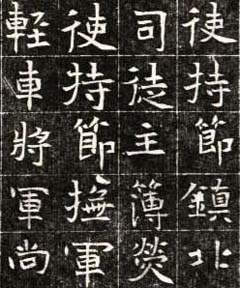 使持節鎮北
司徒主簿熒
使持節撫軍
輕車將軍尚